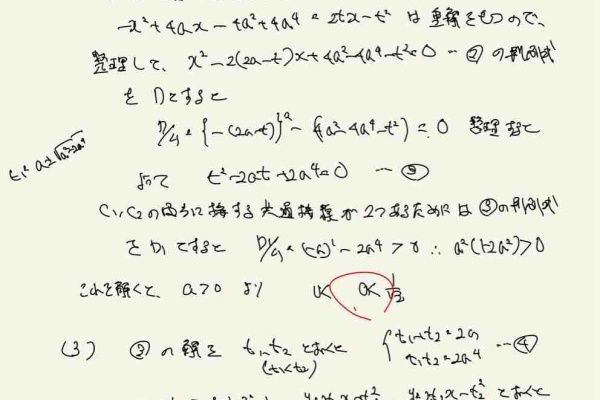 -x²+4ax-4a²+4a⁴=2tx-t² は重解をもつので、
整理して、x²-2(2a-t)x+4a²-4a⁴-t²=0 …② の判別式
を D とすると
D/4={-(2a-t)}²-(4a²-4a⁴-t²)=0 整理すると
t=a±√a²-2a⁴
よって t²-2at+2a⁴=0 …③
C₁,C₂の両方に接する共通接線が2つあるためには③の判別式
を D₁とすると D₁/4=(-a)²-2a⁴>0 ∴ a²(1-2a²)>0
これを解くと、a>0 より
(3) ③の解を t₁,t₂ とおくと { t₁+t₂=2a
(t₁<t₂) t₁t₂=2a⁴ …④
とおくと